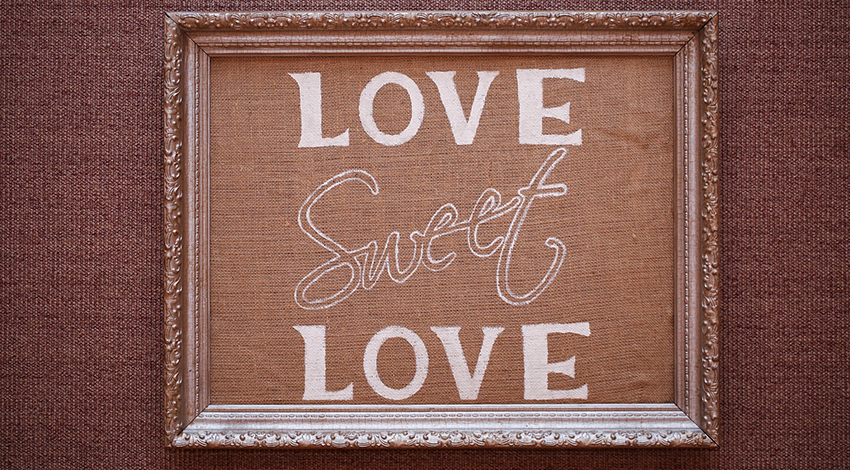 LOVE
Sweet
LOVE